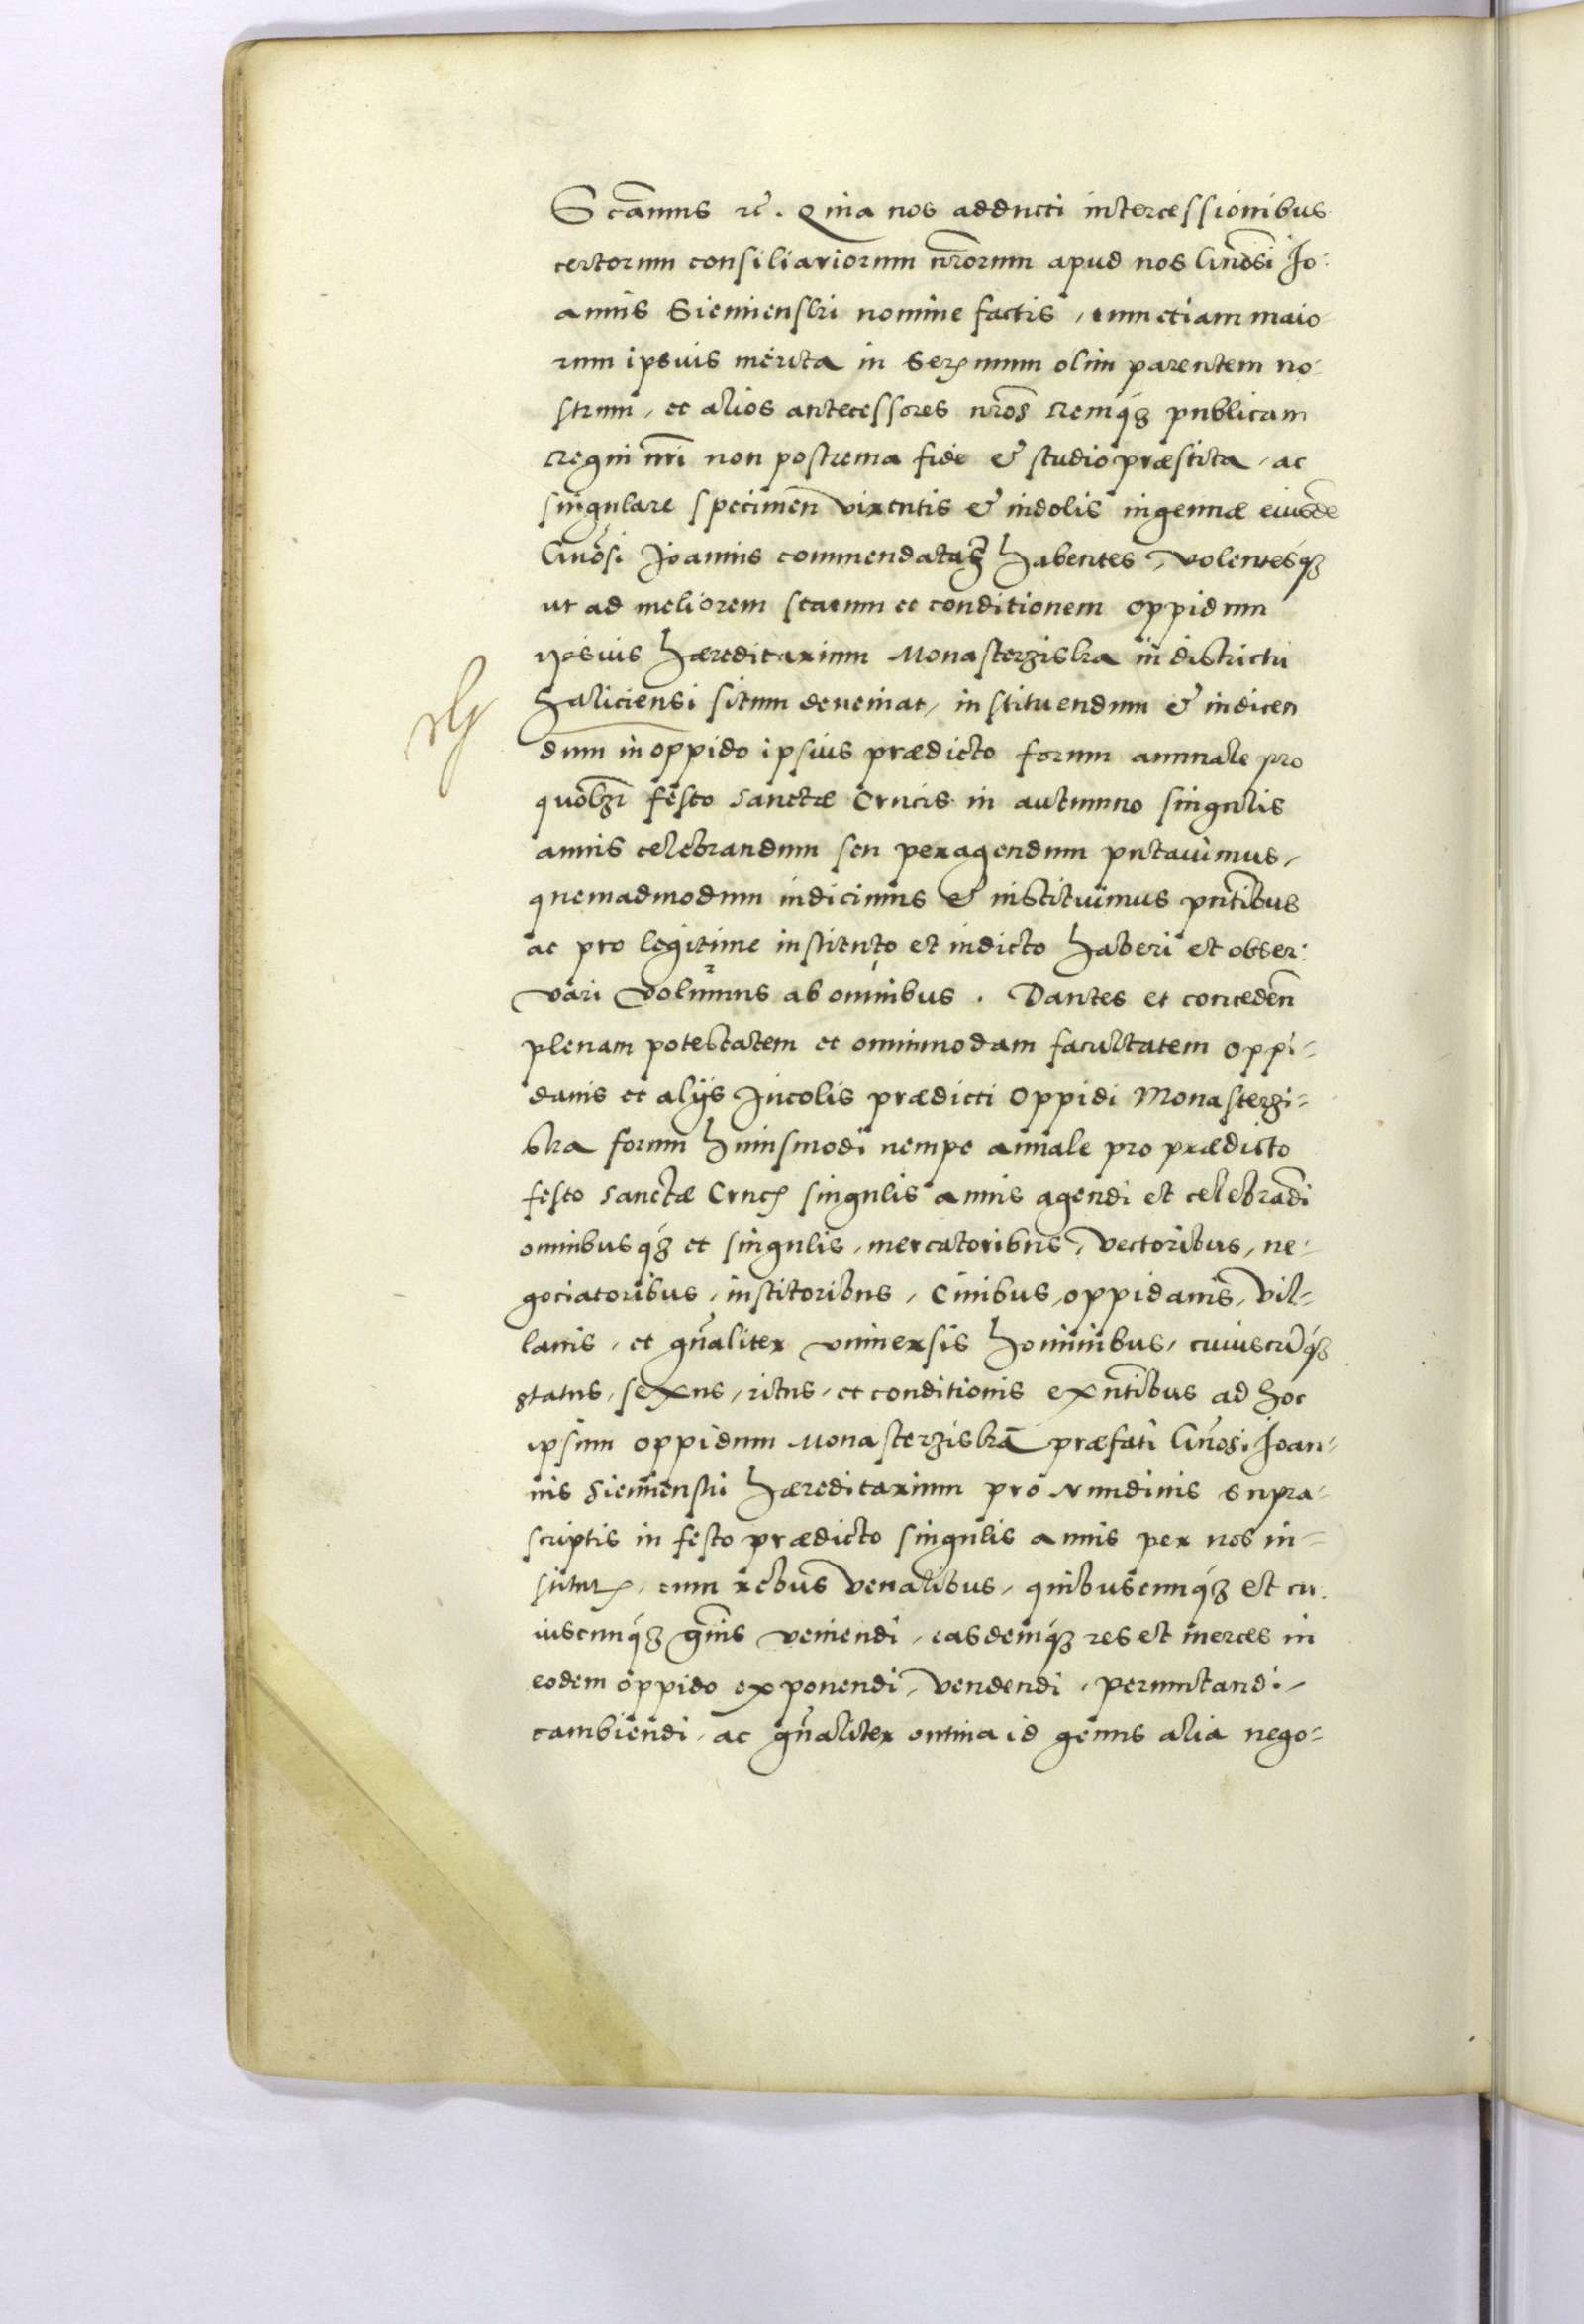 Scām̃us rc̃. Quia nos adducti intercessionibus
certorum consiliariorum nr̃orum apud nos Gñosi Jo:
annis Siemienski nomine factis, tum etiam maio
rum ipsius merita in Ser mum olim parentem no:
strum, et alios antecessores nr̃os Remq́ꝫ publicam
Regni nr̃i non postrema fide & studio præstita, ac
singulare specimen virtutis & indolis ingenuæ eiusdē
Gñosi Joannis commendata habentes, volentesq́ꝫ
ut ad meliorem statum et conditionem oppidum
ipsius hæreditarium Monasterziska in districtu
Haliciensi situm deveniat, instituendum & indicen
dum in oppido ipsius prædicto forum annuale pro
quolꝫ festo Sanctæ Crucis in autumno singulis
annis celebrandum seu peragendum putavimus,
quemadmodum indicimus & instituimus pñtibus
ac pro legitime instituto et indicto haberi et obser:
vari volumus ab omnibus. Dantes et conceden̄
plenam potestatem et omnimodam facultatem oppi=
danis et alijs Incolis prædicti Oppidi Monasterzi=
ska forum huiusmodi nempe annale pro prædicto
festo Sanctæ Cruc singulis annis agendi et celebrādi
omnibusq́ꝫ et singulis, mercatoribus, vectoribus, ne=
gociatoribus, institoribus, Civibus, oppidanis, vil=
lanis, et gñaliter universis hominibus, cuiuscūq́ꝫ
status, sexus, ritus, et conditionis exñtibus ad hoc
ipsum oppidum Monasterziska præfati Gñosi Joan=
nis Siemienski hæreditarium pro Nundinis supra=
scriptis in festo prædicto singulis annis per nos in=
stitut, cum rebus venalibus, quibuscunq́ꝫ et cu
iuscunq́ꝫ gñis veniendi, easdemq́ꝫ res et merces in
eodem oppido exponendi, vendendi, permutandi,
cambiendi, ac gñaliter omnia id genus alia nego=